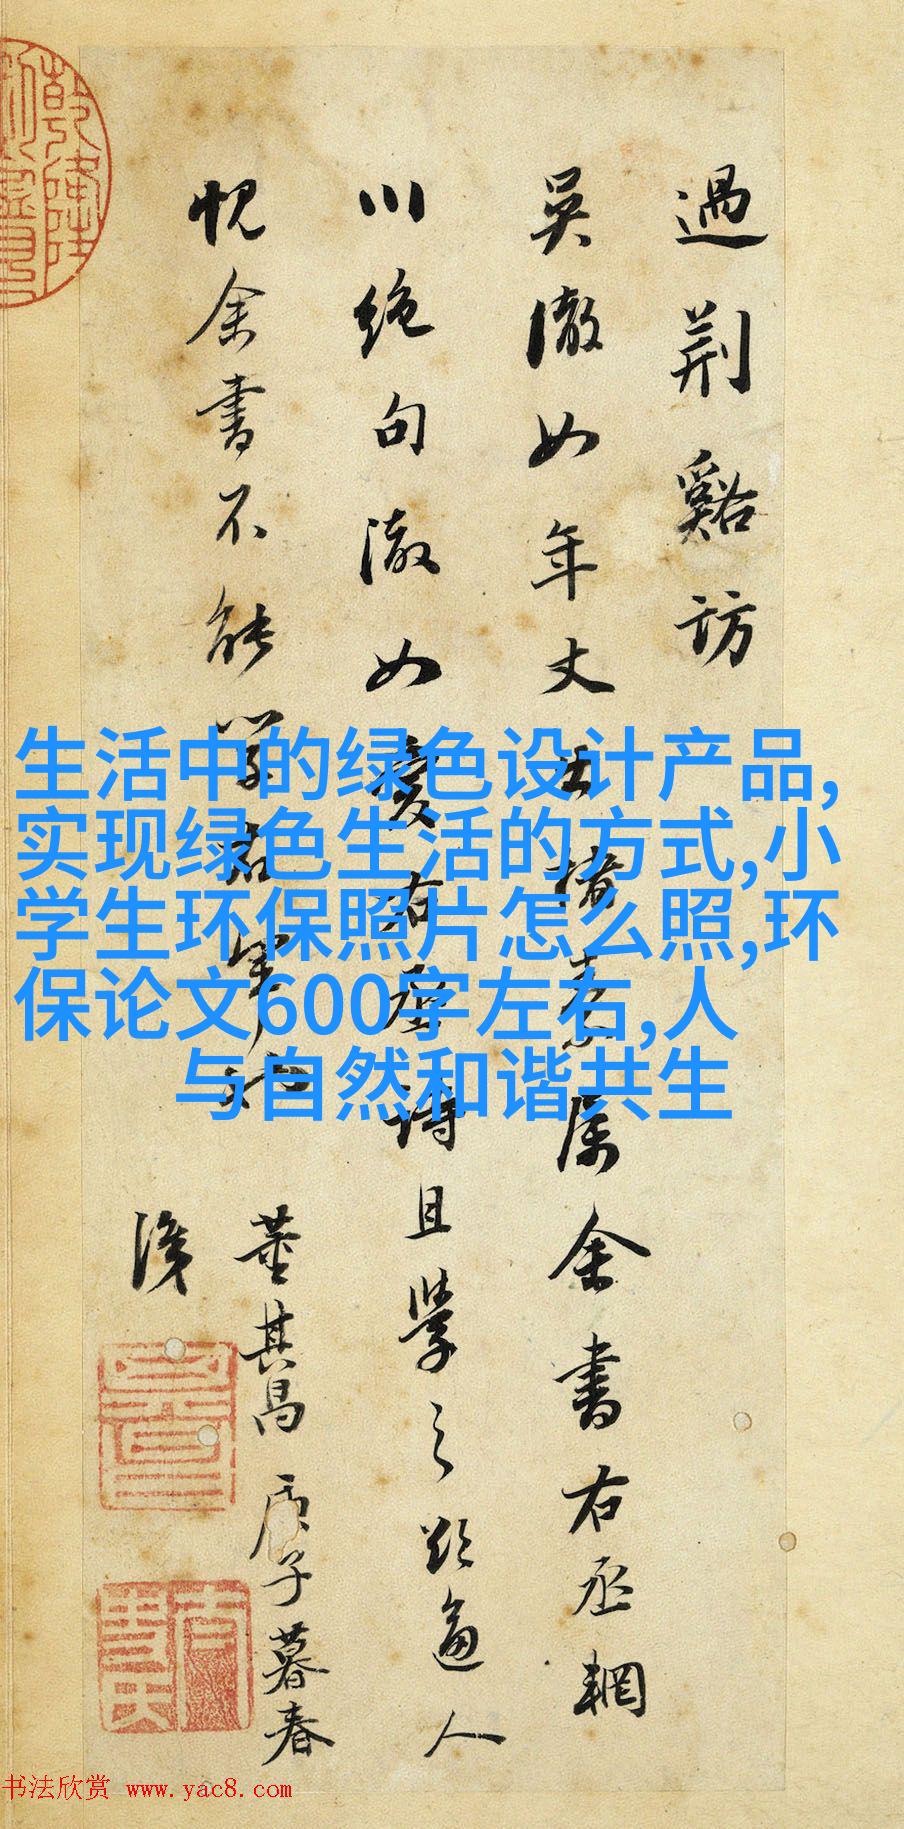 過荆谿訪
吳澈如年丈出横素属余書右丞輞
川绝句澈如愛右丞诗且學之欲逼人
愧余書不能學
董其昌 庚子暮春
識
乾隆
生活中的绿色设计产品,
实现绿色生活的方式,小
学生环保照片怎么照,环
保论文600字左右,人
与自然和谐共生
书法欣赏 www.yac8.com